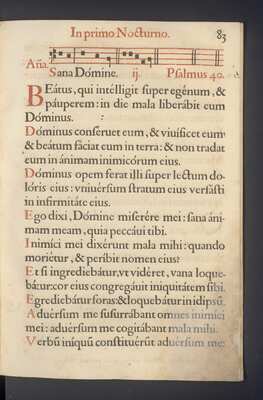 In primo Nocturno. 83
Aña. Sana Dómine. ij. Psalmus 40.
BEátus, qui intélligit super egénum, &
páuperem: in die mala liberábit eum
Dóminus.
Dóminus conseruet eum, & viuíficet eum
& beátum fáciat eum in terra: & non tradat
eum in ánimam inimicórum eius.
Dóminus opem ferat illi super lectum do-
lóris eius: vniuérsum stratum eius versásti
in infirmitáte eius.
Ego dixi, Dómine miserére mei: sana áni-
mam meam, quia peccáui tibi.
Inimíci mei dixérunt mala mihi: quando
moriétur, & períbit nomen eius?
Et si ingrediebátur, vt vidéret, vana loque-
bátur: cor eius congregáuit iniquitátem sibi.
Egrediebátur foras: & loquebátur in idipsū.
Aduérsum me susurrábant omnes inimíci
mei: aduérsum me cogitábant mala mihi.
Verbū iníquū constituérūt aduérsum me: